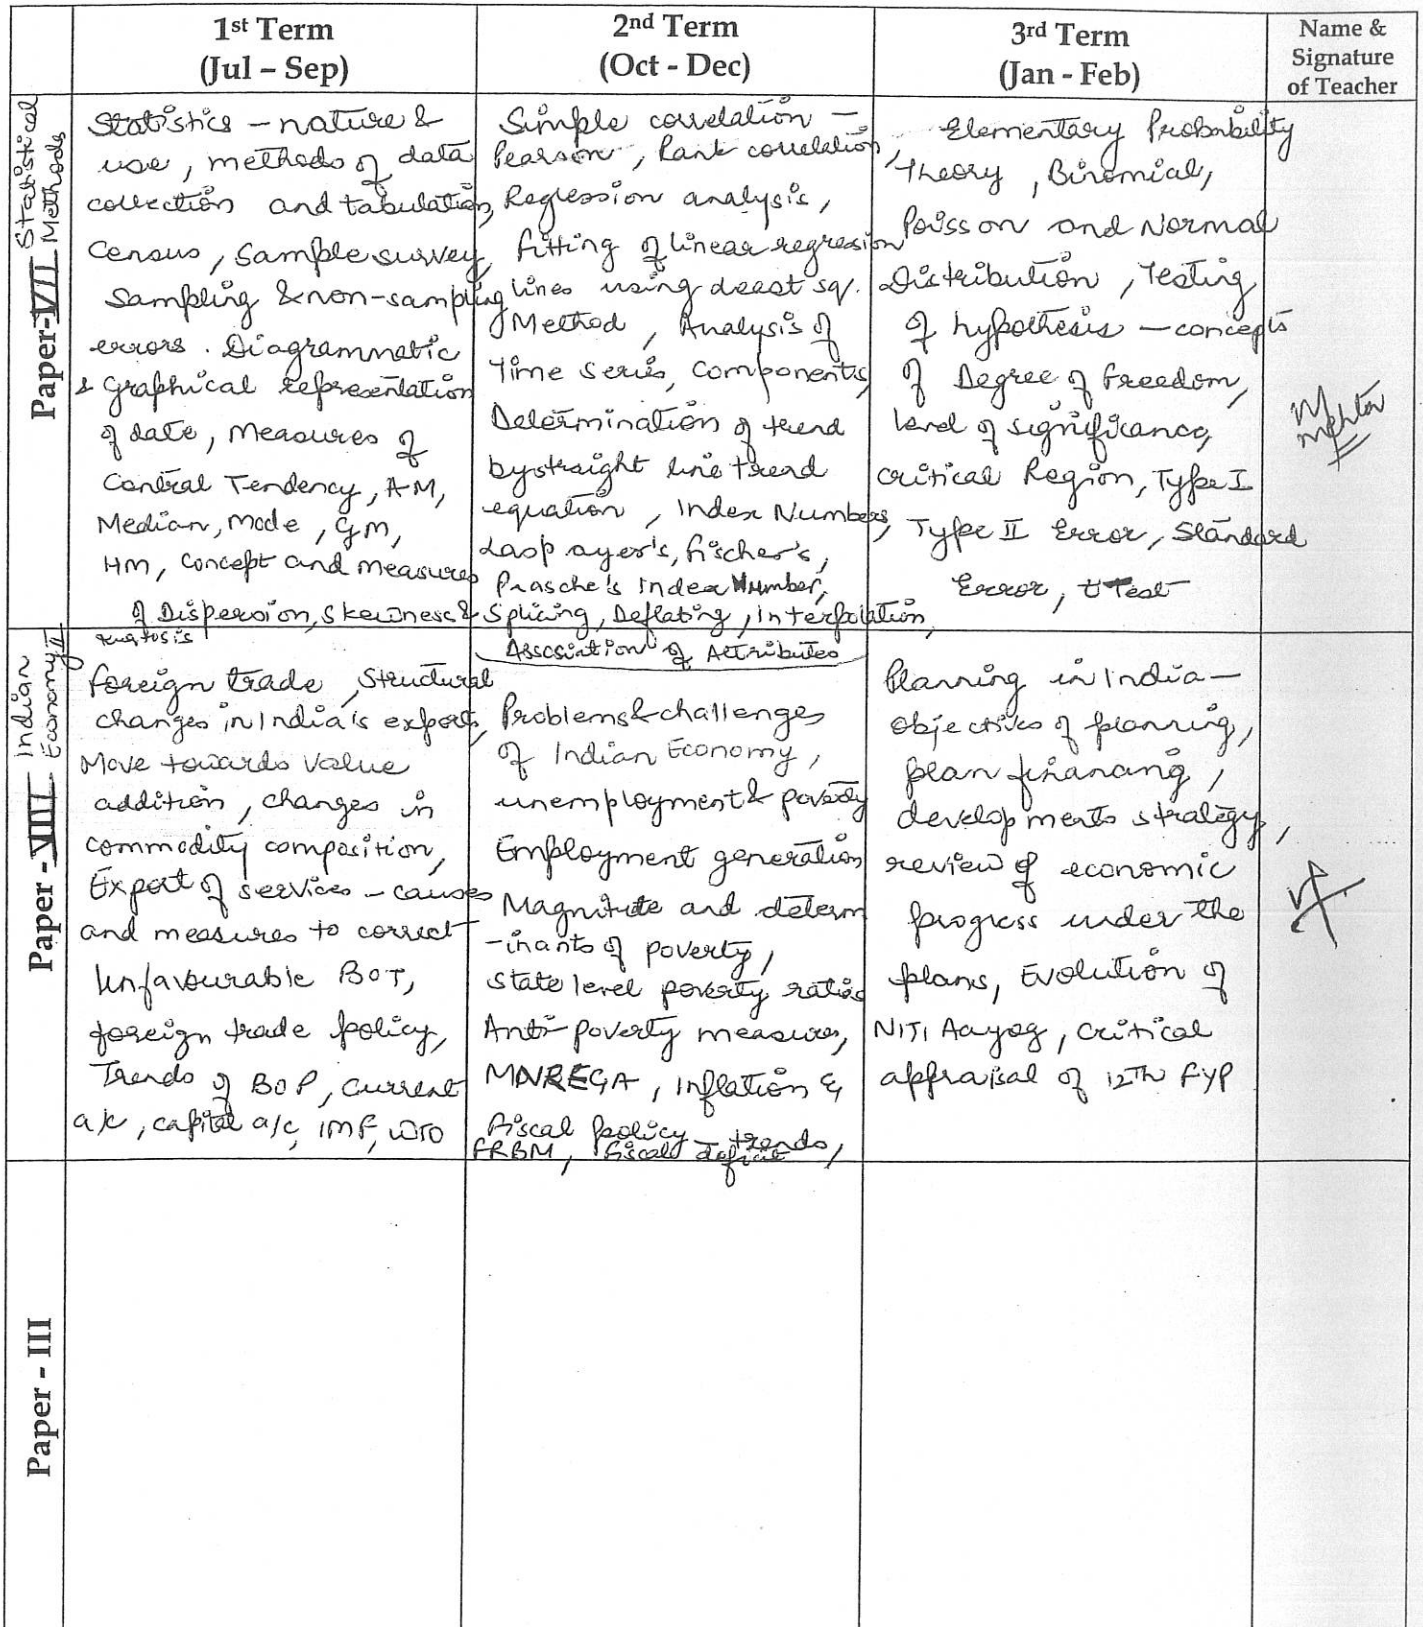 1st Term
(Jul – Sep)
2nd Term
(Oct - Dec)
3rd Term
(Jan - Feb)
Name &
Signature
of Teacher
Paper-VII Statistical
Methods
Statistics – nature &
use, methods of data
collection and tabulation,
Census, Sample survey,
Sampling & non-sampling
errors. Diagrammatic
& Graphical representation
of data, Measures of
Central Tendency, AM,
Median, Mode, GM,
HM, Concept and measures
of Dispersion, Skewness &
Simple correlation –
Pearson, Rank correlation,
Regression analysis,
Fitting of linear regression
lines using least sq.
Method, Analysis of
Time Series, Components,
Determination of trend
by straight line trend
equation, Index Numbers,
Laspayer's, Fischer's,
Prasche's Index Number,
Splicing, Deflating, Interpolation,
Association of Attributes
Elementary Probability
Theory, Binomial,
Poisson and Normal
Distribution, Testing
of hypothesis – concepts
of Degree of Freedom,
level of significance,
Critical Region, Type I
Type II Error, Standard
Error, t Test
Paper - VIII Indian
Economy II
Foreign trade, Structural
changes in India's export,
Move towards Value
addition, changes in
commodity composition,
Export of services – causes
and measures to correct
Unfavourable BOT,
foreign trade policy,
Trends of BOP, current
a/c, capital a/c, IMF, WTO
Problems & challenges
of Indian Economy,
unemployment & poverty
Employment generation
Magnitute and determ
-inants of poverty,
State level poverty ratios
Anti-poverty measures,
MNREGA, Inflation &
Fiscal policy – trends,
FRBM, fiscal deficit
Planning in India –
objectives of planning,
plan financing,
developments strategy,
review of economic
progress under the
plans, Evolution of
NITI Aayog, Critical
appraisal of 12th FYP
Paper - III